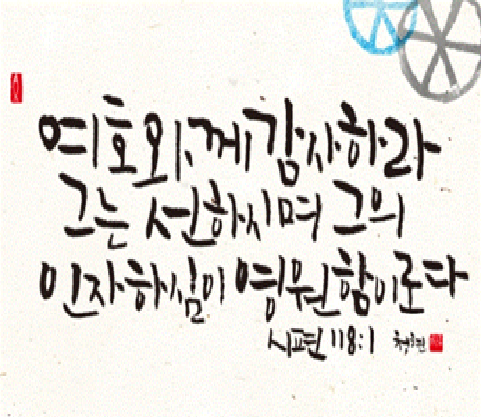 여호와께 감사하라
그는 선하시며 그의
인자하심이 영원함이로다
시편 118:1